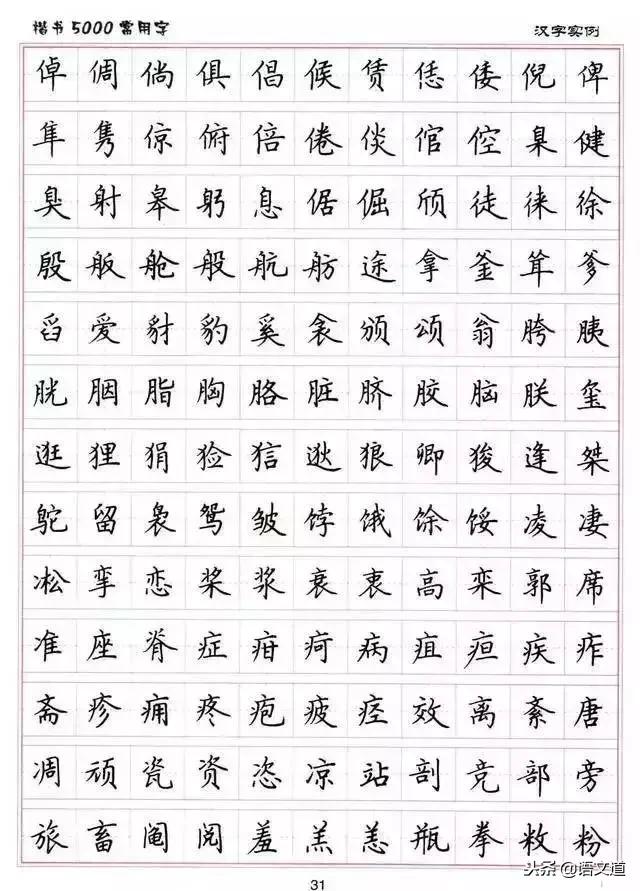 楷书5000常用字 汉字实例
倬 倜 倘 俱 倡 候 赁 恁 倭 倪 俾
隼 隽 倞 俯 倍 倦 倓 倌 倥 臬 健
臭 射 皋 躬 息 倨 倔 颀 徒 徕 徐
殷 舨 舱 般 航 舫 途 拿 釜 耸 爹
舀 爱 豺 豹 奚 衾 颁 颂 翁 胯 胰
胱 胭 脂 胸 胳 脏 脐 胶 脑 朕 玺
逛 狸 狷 猃 狺 逖 狼 卿 狻 逢 桀
鸵 留 袅 鸳 皱 饽 饿 馀 馁 凌 凄
凇 挛 恋 桨 浆 衰 衷 高 栾 郭 席
准 座 脊 症 疳 疴 病 疽 疸 疾 痄
斋 疹 痈 疼 疱 疲 痉 效 离 紊 唐
凋 顽 瓷 资 恣 凉 站 剖 竞 部 旁
旅 畜 阃 阅 羞 羔 恙 瓶 拳 敉 粉
31
头条@语文道